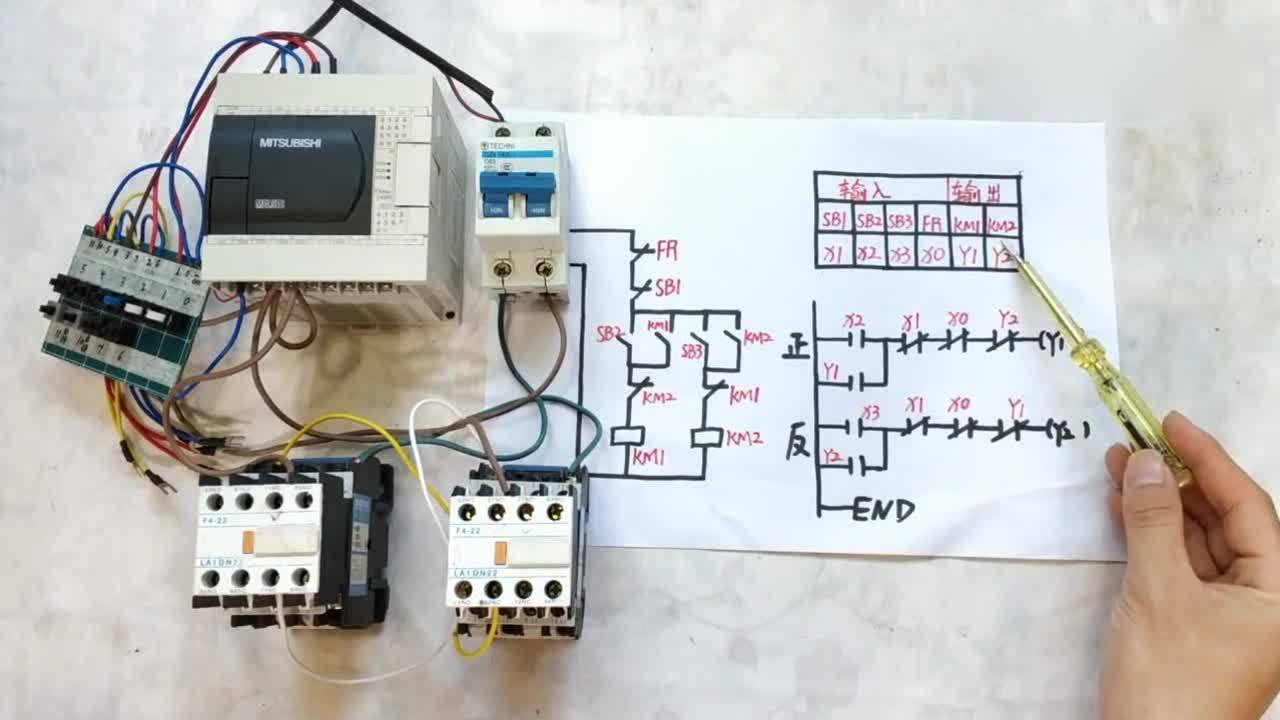 MITSUBISHI
TECHNI
ION
ION
F4-22
LA1DN22
F4-22
LA1DN22
FR
SB1
SB2
KM1
SB3
KM2
KM2
KM1
KM1
KM2
输入 输出
SB1 SB2 SB3 FR KM1 KM2
X1 X2 X3 X0 Y1 Y2
正 X2 X1 X0 Y2 (Y1
Y1
反 X3 X1 X0 Y1 (Y2)
Y2
END